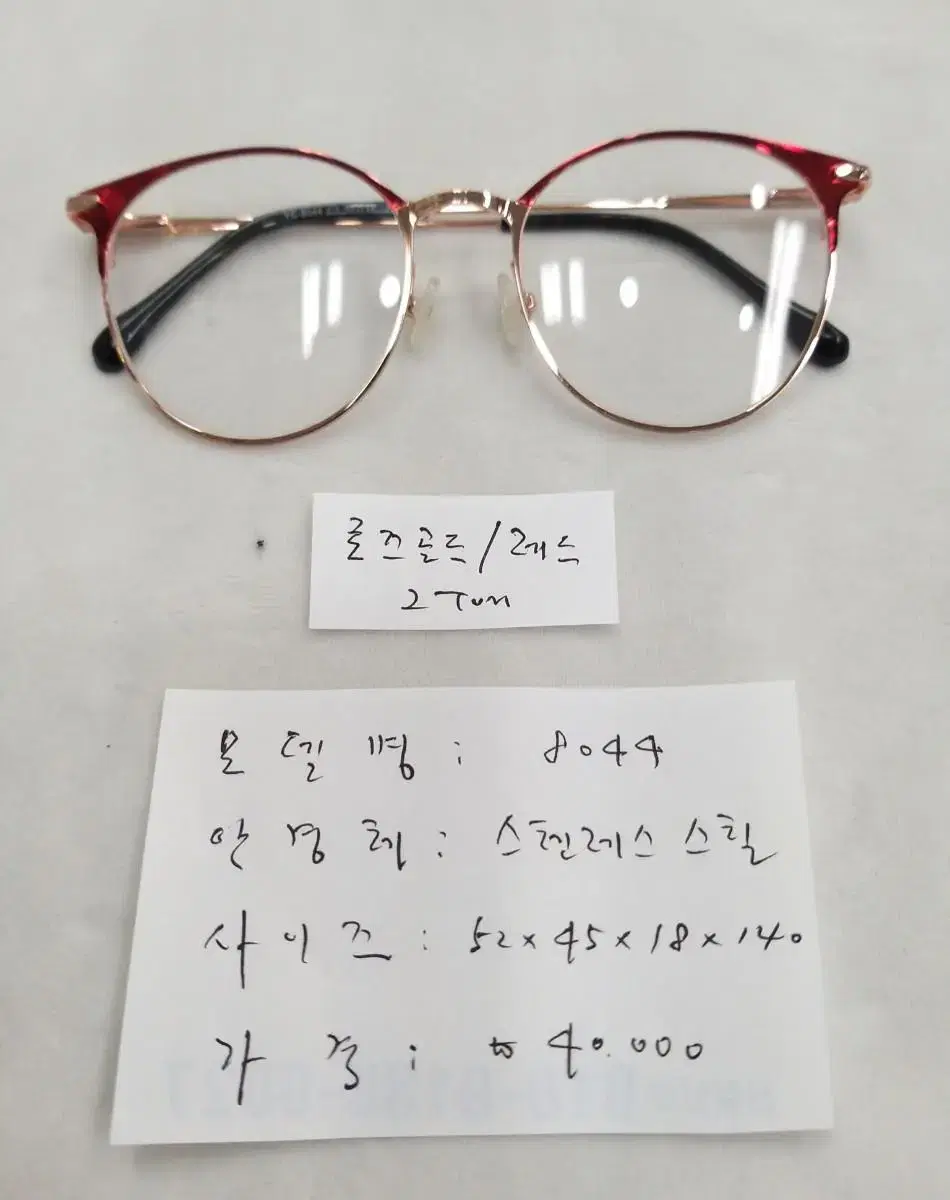 로즈골드/레드
2 Ton
모델명: 8044
안경체: 스텐레스 스틸
사이즈: 52x45x18x140
가격: ₩40.000